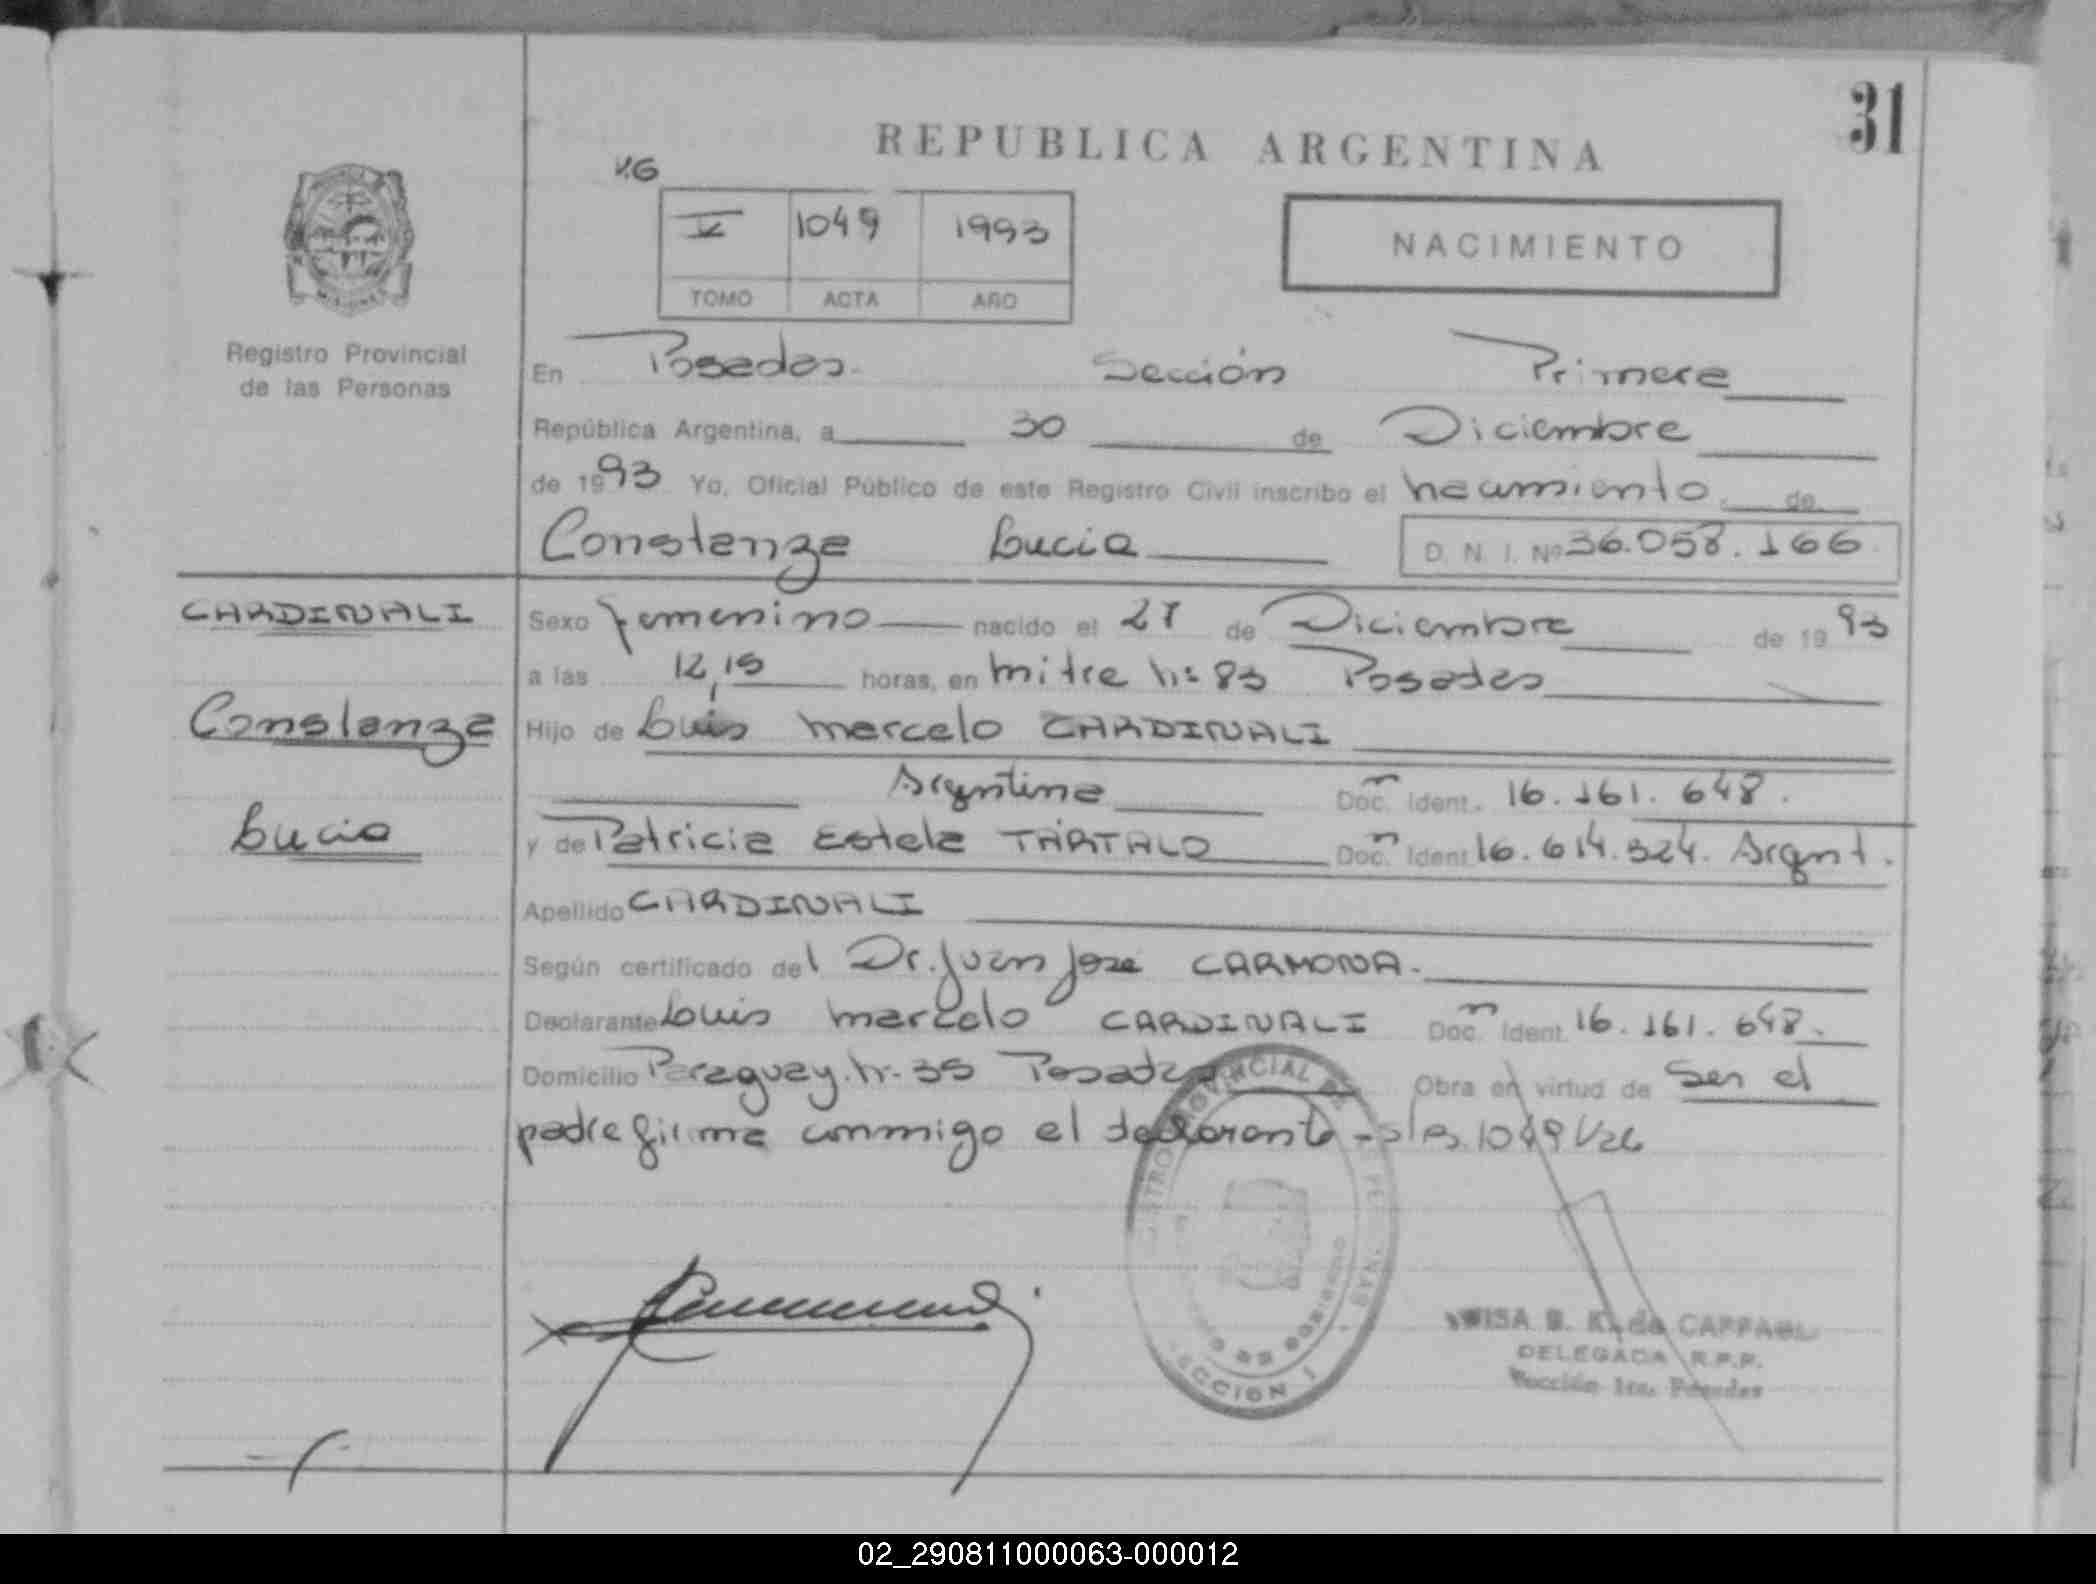 31
REPUBLICA ARGENTINA
V 1049 1993
TOMO ACTA AÑO
NACIMIENTO
Registro Provincial
de las Personas
En Posadas. Sección Primera
República Argentina, a 30 de Diciembre
de 1993 Yo, Oficial Público de este Registro Civil inscribo el nacimiento. de
Constanza Lucia D. N. I. Nº 36.058.166
CARDINALI
Constanza
Lucia
Sexo femenino nacido el 27 de Diciembre de 1993
a las 12,15 horas, en mitre nº 83 Posadas
Hijo de Luis marcelo CARDINALI
Argentina Doc. Ident. 16.161.648.
y de Patricia Estela TARTALO Doc. Ident. 16.614.324. Argent.
Apellido CARDINALI
Según certificado del Dr. Juan Jose CARMONA.
Declarante Luis marcelo CARDINALI Doc. Ident. 16.161.648.
Domicilio Paraguay. nº 35 Posadas Obra en virtud de Ser el
padre firma conmigo el declarante - 1049
REGISTRO PROVINCIAL DE LAS PERSONAS
MINISTERIO DE GOBIERNO
SECCION 1
B. K. de
DELEGADA R.P.P.
Sección 1ra. Posadas
02_290811000063-000012